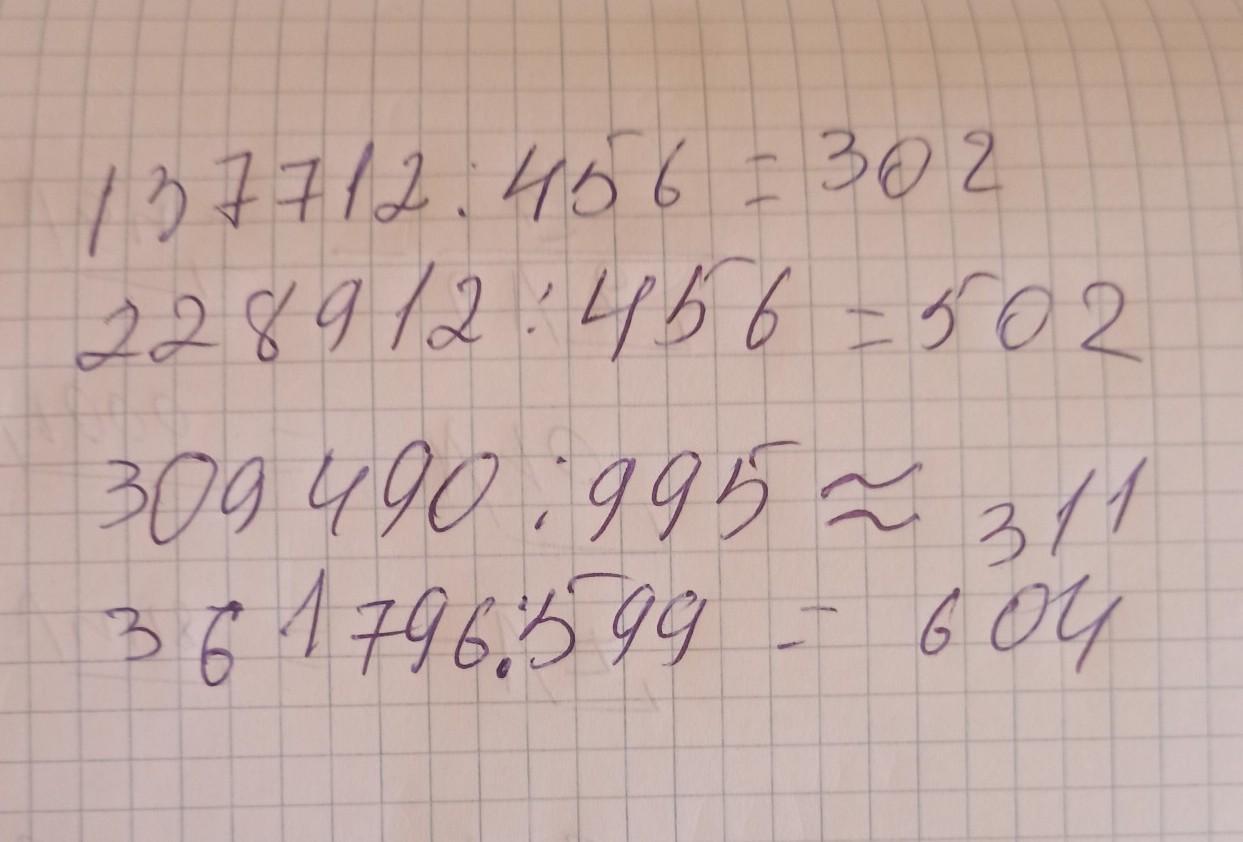 137712:456=302
228912:456=502
309490:995≈311
361796:599=604